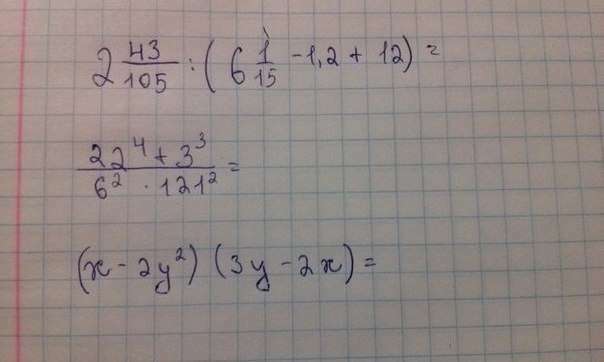 2 43/105 : (6 1/15 - 1,2 + 12) =
(22⁴ + 3³)/(6² · 121²) =
(x - 2y²) (3y - 2x) =